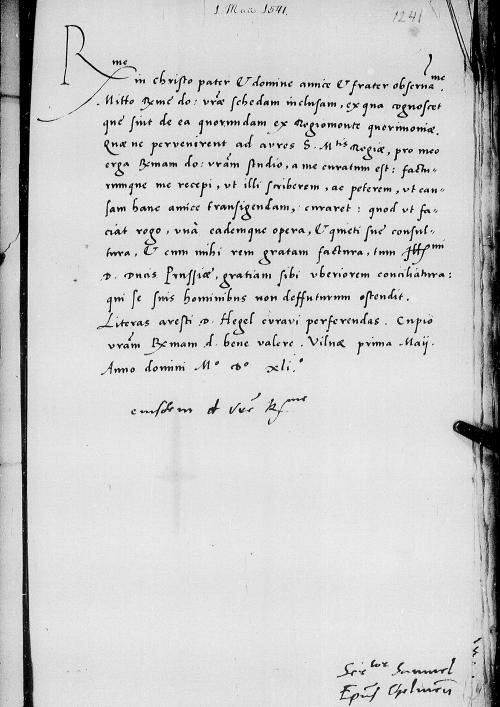 1. Maii 1541.
1241
R.me in christo pater & domine amice & frater observan.me
Mitto R.me do: vrae schedam inclusam, ex qua cognoscet
que sint de ea quorundam ex Regiomonte querimoniae.
Quae ne pervenirent ad aures S. M.tis Regiae, pro meo
erga R.mam do: vram studio, a me curatum est: factu=
rumque me recepi, ut illi scriberem, ac peterem, ut cau=
sam hanc amice transigendam, curaret: quod ut fa=
ciat rogo, una eademque opera, & quieti sue consul=
tura, & cum mihi rem gratam factura, tum Ill.mi
D. Ducis Prussiae, gratiam sibi uberiorem conciliatura:
qui se suis hominibus non deffuturum ostendit.
Literas aresti D. Hegel curavi perferendas. Cupio
vram R.mam d. bene valere. Vilnae prima Maij.
Anno domini M.o D.o xli.o
eiusdem d vre R.me
Samuel
Epus Chelmen